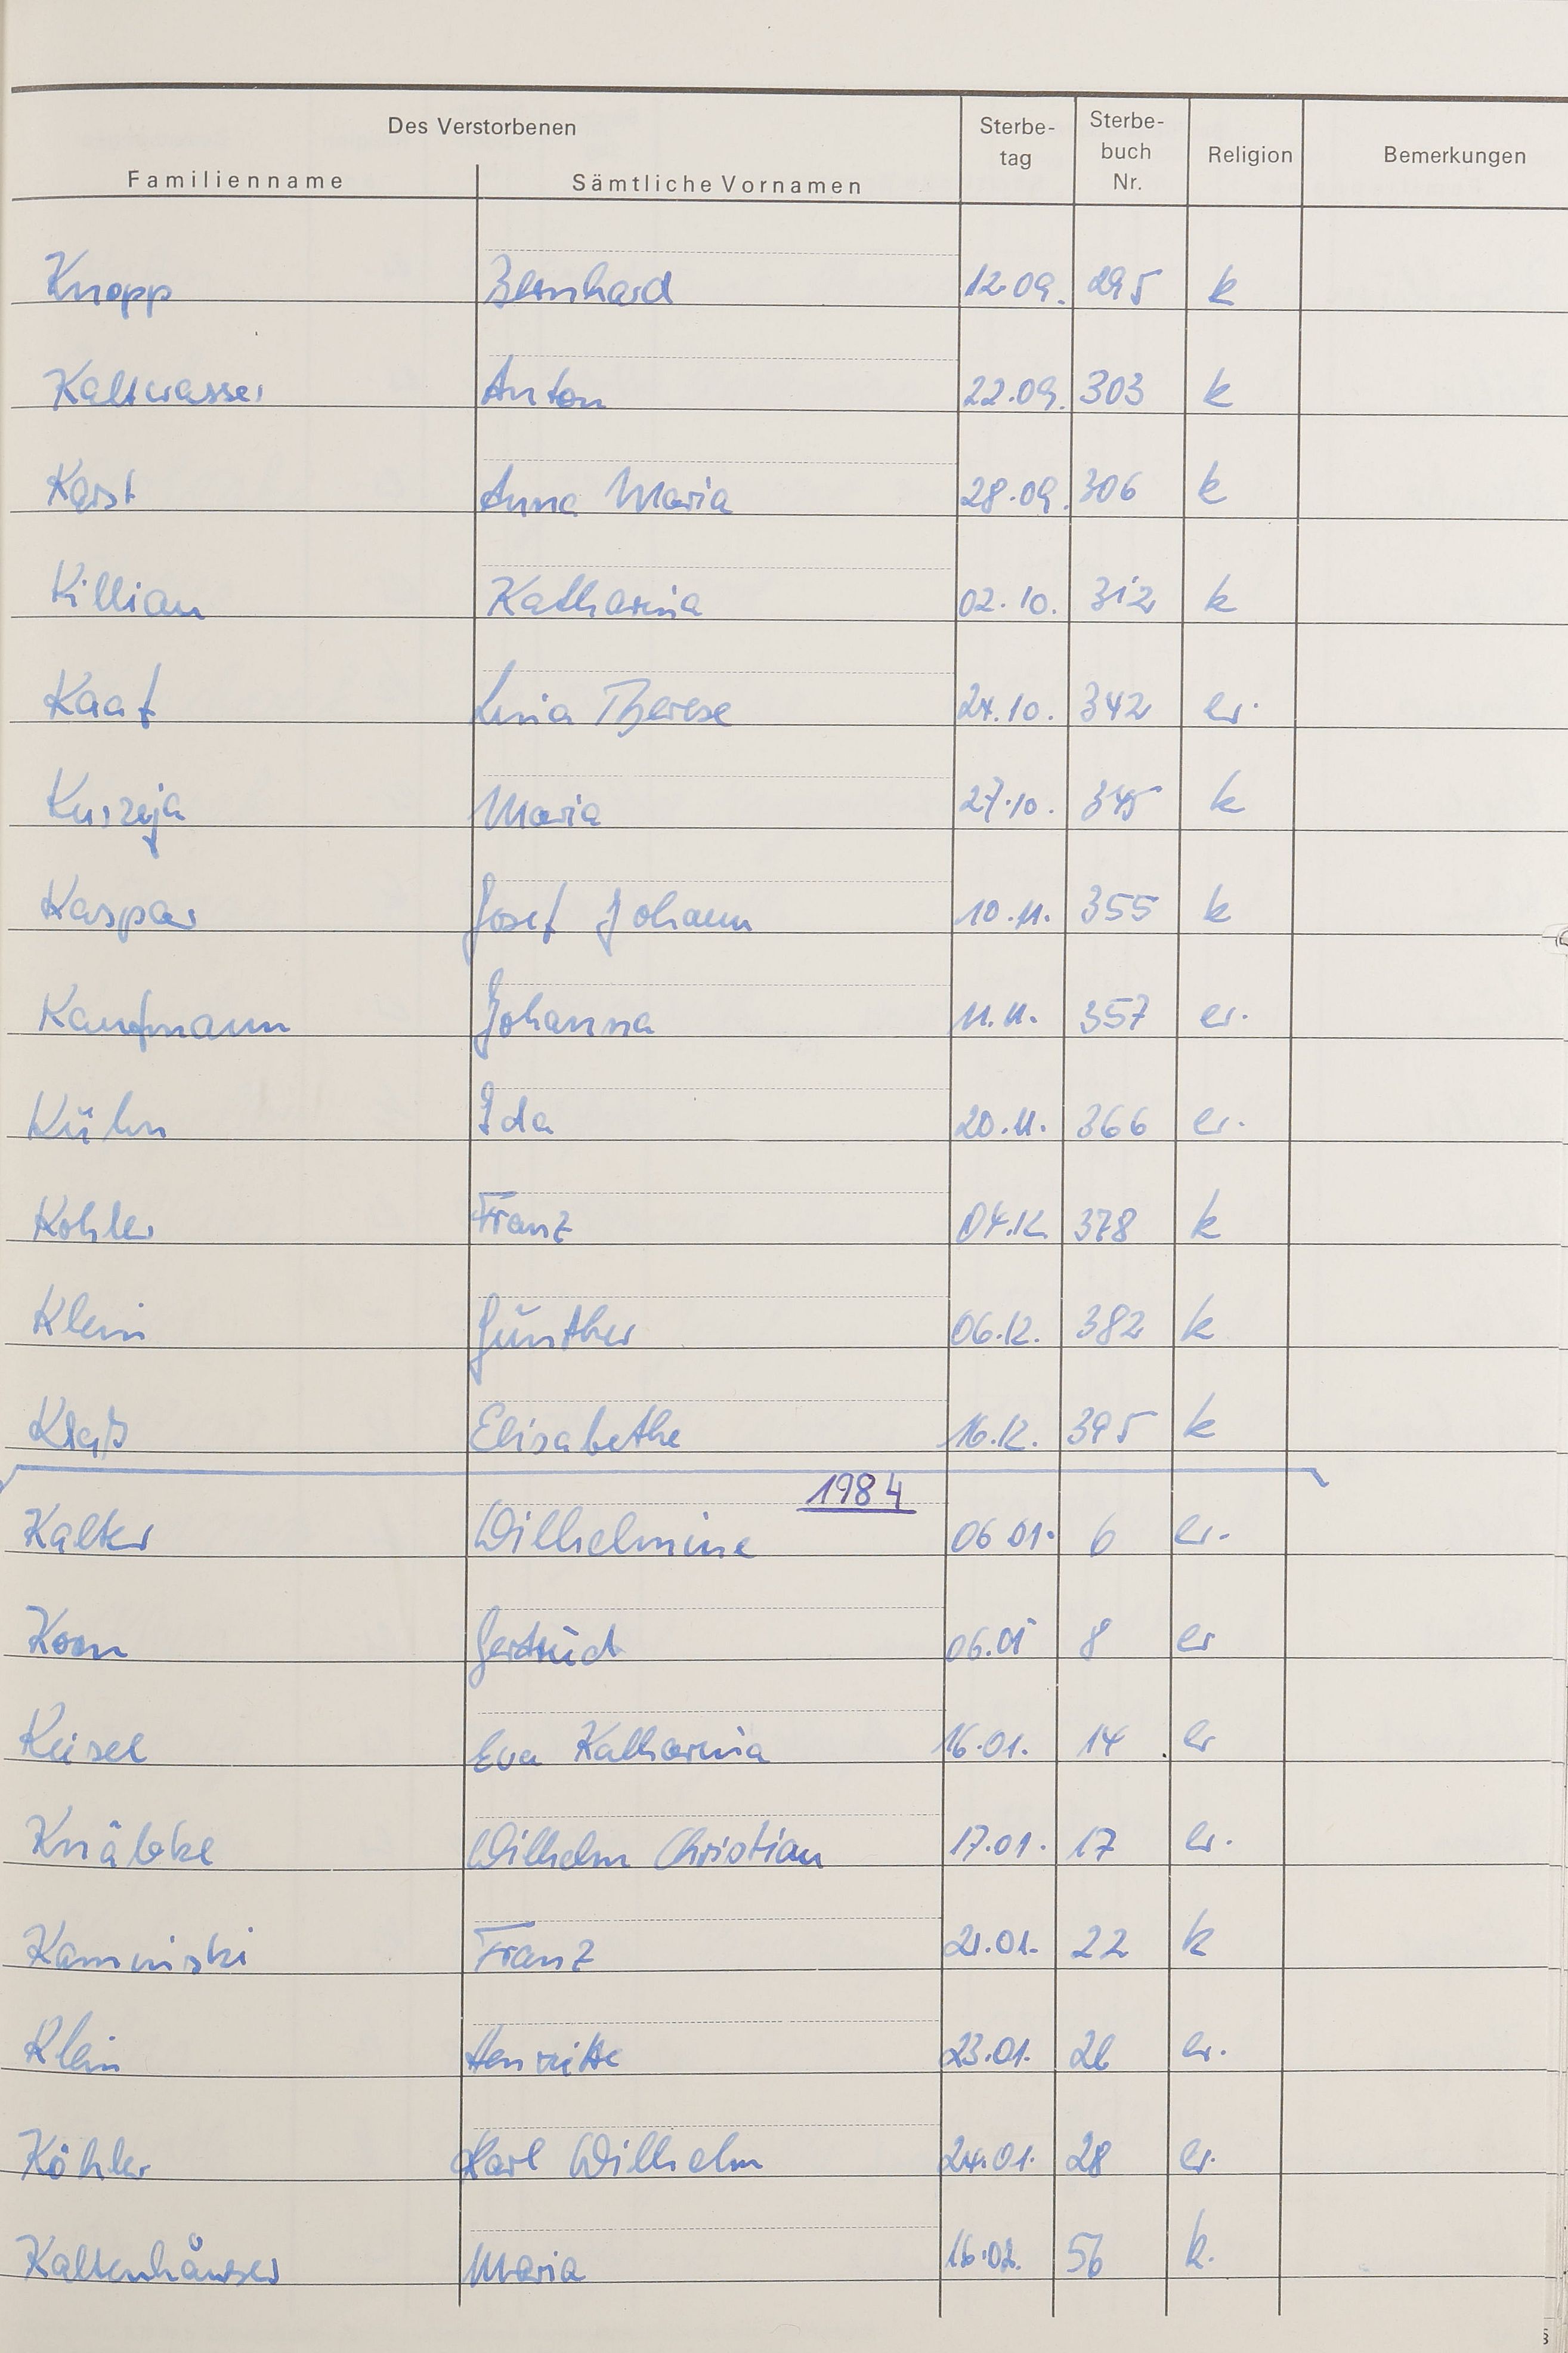 Des Verstorbenen
Familienname Sämtliche Vornamen Sterbe-tag Sterbe-buch Nr. Religion Bemerkungen
Knopp Bernhard 12.09. 295 k
Kaltwasser Anton 22.09. 303 k
Karst Anna Maria 28.09. 306 k
Killian Katharina 02.10. 312 k
Kaaf Lina Therese 24.10. 342 ev.
Kurzeja Maria 27.10. 345 k
Kaspar Josef Johann 10.11. 355 k
Kaufmann Johanna 11.11. 357 ev.
Kühn Ida 20.11. 366 ev.
Kohler Franz 04.12. 378 k
Klein Günther 06.12. 382 k
Klaß Elisabethe 16.12. 395 k
1984
Kalter Wilhelmine 06 01. 6 ev.
Korn Gertrud 06.01 8 ev
Keisel Eva Katharina 16.01. 14 ev
Knäbke Wilhelm Christian 17.01. 17 ev.
Kaminski Franz 21.01. 22 k
Klein Henriette 23.01. 26 ev.
Köhler Karl Wilhelm 24.01. 28 ev.
Kaltenhäuser Maria 16.02. 56 k.